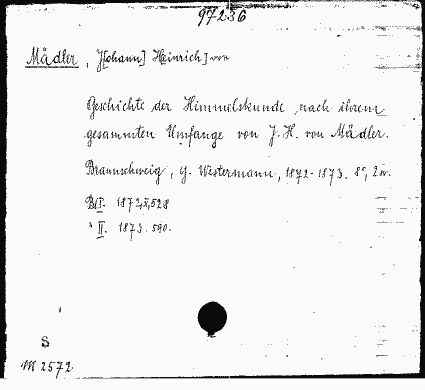 97236
Mädler, J[ohann] H[einrich] von
Geschichte der Himmelskunde nach ihrem
gesammten Umfange von J. H. von Mädler.
Braunschweig, G. Westermann, 1872-1873. 8°, 2 v.
Bd I. 1872, X, 528
" II. 1873. 590.
S
M 2572